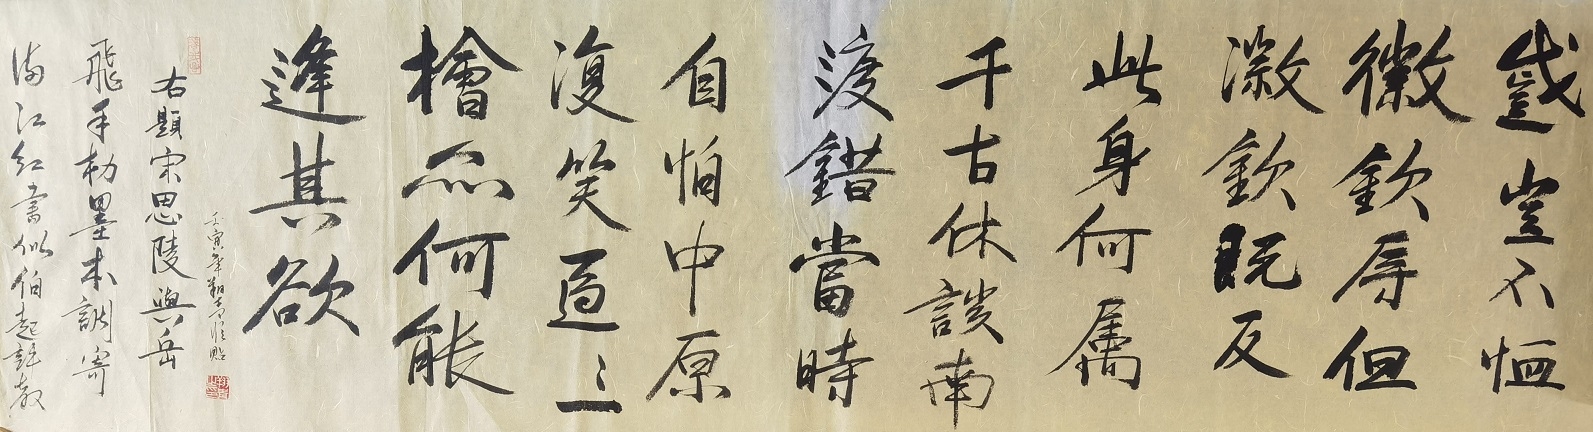 蹙豈不恤
徽欽辱但
徽欽既反
此身何屬
千古休談南
渡錯當時
自怕中原
復笑區〻一
檜亦何能
逢其欲
右題宋思陵與岳
飛手勅墨本調寄
滿江紅書似伯起教
壬寅年臨貼